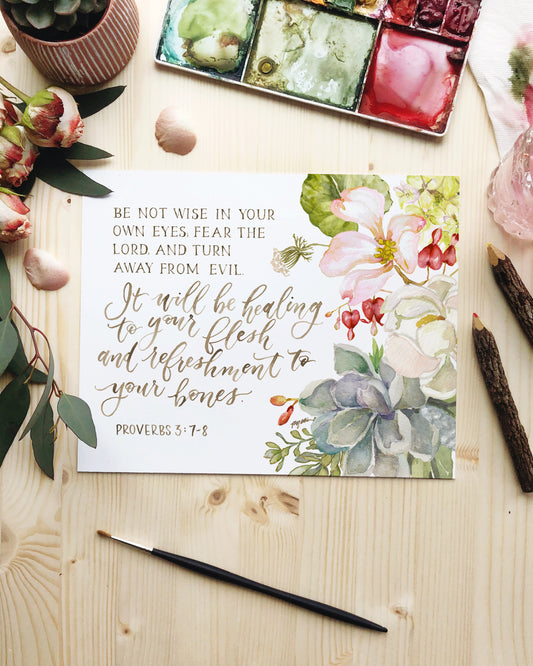 BE NOT WISE IN YOUR
OWN EYES, FEAR THE
LORD, AND TURN
AWAY FROM EVIL.
It will be healing
to your flesh
and refreshment to
your bones.
PROVERBS 3:7-8